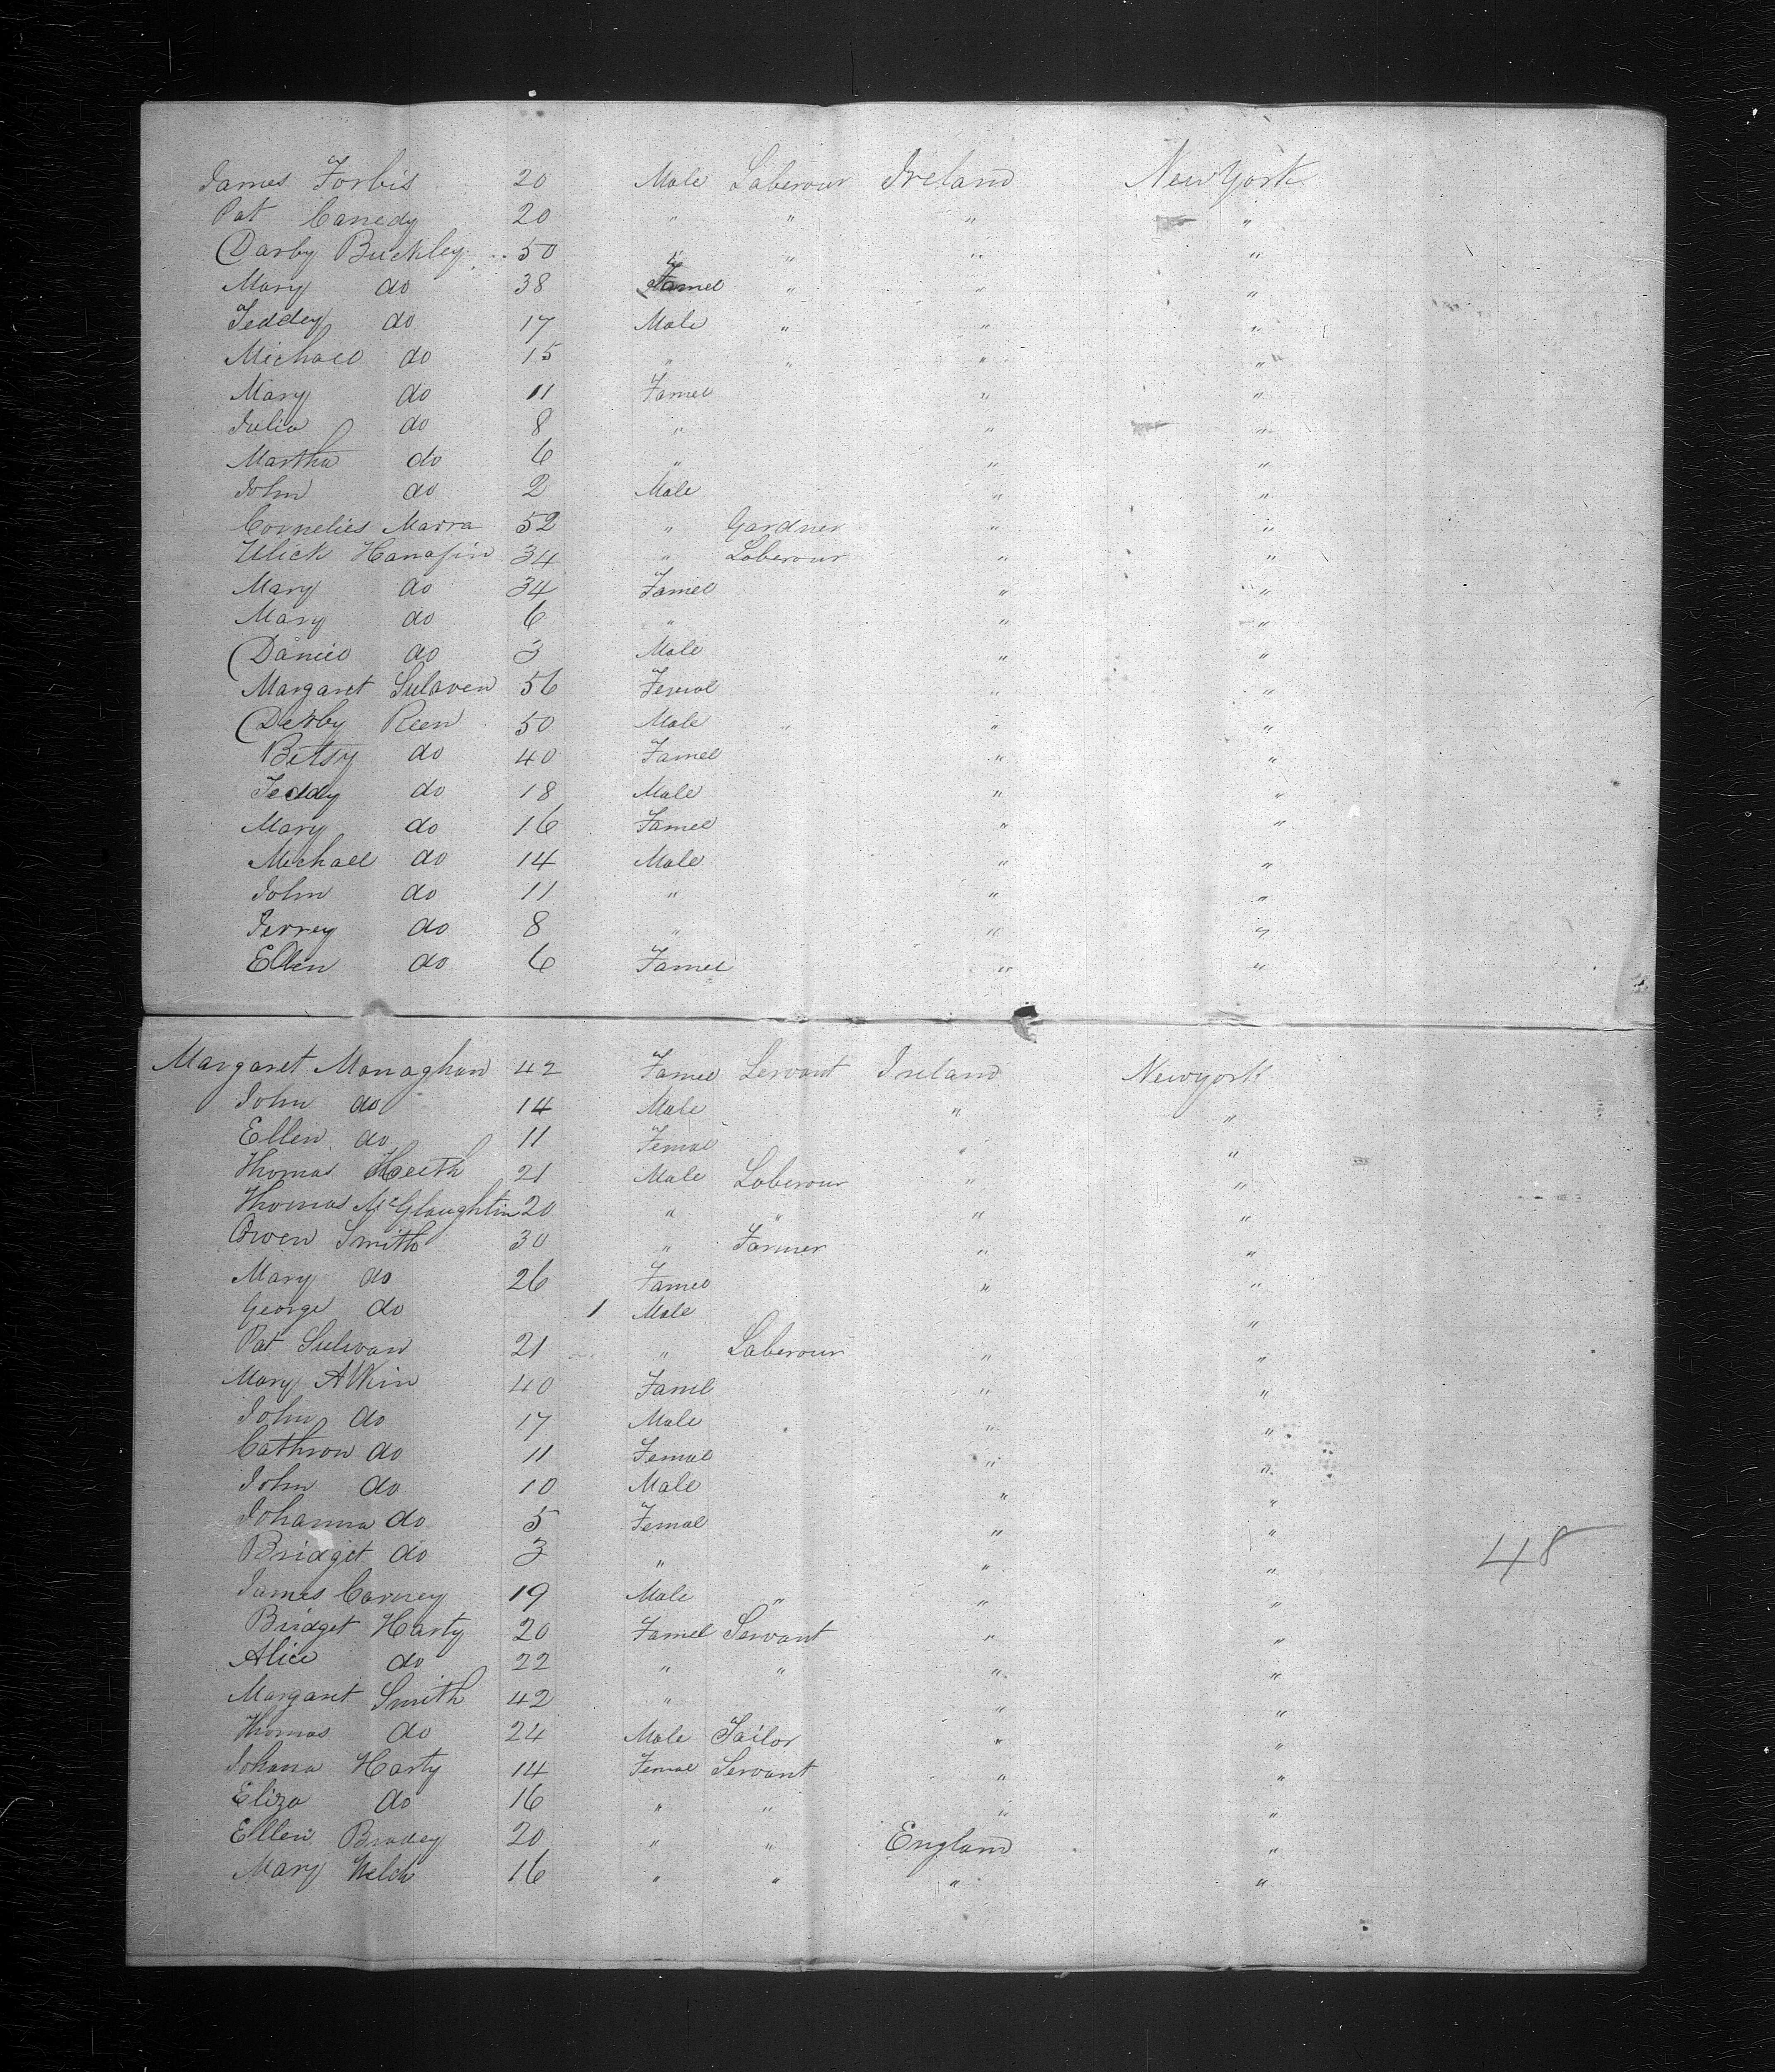 James Forbis 20 Male Laberour Ireland New York
Pat Canedy 20 " " " "
Darby Buckley 50 " " " "
Mary do 38 Famel " " "
Teddey do 17 Male " " "
Michael do 15 " " " "
Mary do 11 Famel " "
Julia do 8 " " "
Martha do 6 " " "
John do 2 Male " "
Cornelies Marra 52 " Gardner " "
Ulick Hanafin 34 " Laberour " "
Mary do 34 Famel " "
Mary do 6 " " "
Daniel do 3 Male " "
Margaret Sulaven 56 Femal " "
Derby Reen 50 Male " " "
Betsy do 40 Famel " "
Teddy do 18 Male " "
Mary do 16 Famel " "
Michael do 14 Male " "
John do 11 " " "
Jerrey do 8 " " "
Ellen do 6 Famel " "
Margaret Monaghan 42 Famel Servant Ireland Newyork
John do 14 Male " "
Ellen do 11 Femal " "
Thomas Keeth 21 Male Laberour " "
Thomas McGlaughlin 20 " " " "
Owen Smith 30 " Farmer " "
Mary do 26 Famel " "
George do 1 Male "
Pat Sulivan 21 " Laberour " "
Mary Atkin 40 Famel " "
John do 17 Male " "
Cathron do 11 Femal " "
John do 10 Male " "
Johanna do 5 Femal " "
Bridget do 3 " " "
48
James Carney 19 Male " " "
Bridget Harty 20 Famel Servant " "
Alice do 22 " " " "
Margaret Smith 42 " " "
Thomas do 24 Male Tailor " "
Johana Harty 14 Femal Servant " "
Eliza do 16 " " " "
Ellen Bradey 20 " " England "
Mary Welch 16 " " " "